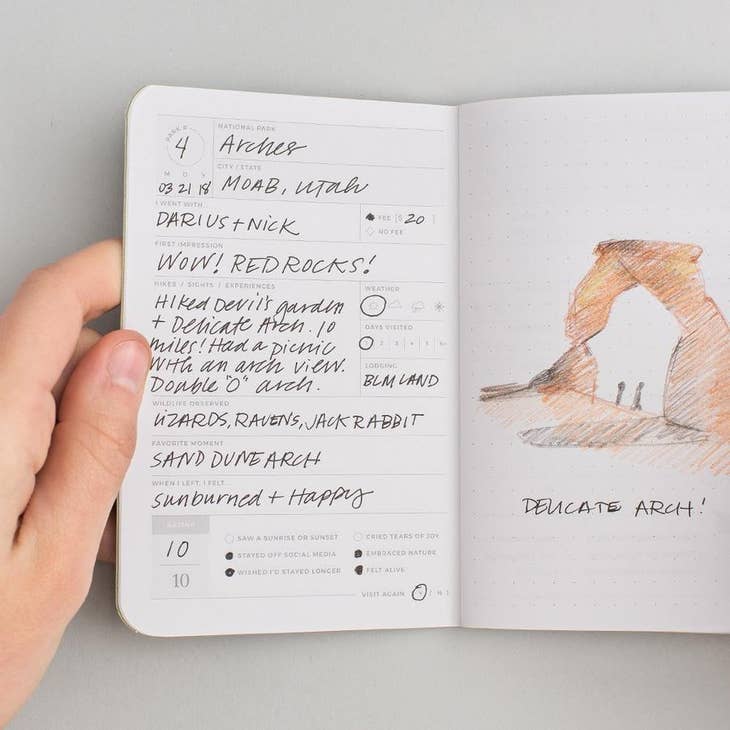 PARK #
4
NATIONAL PARK
Arches
CITY / STATE
MOAB, Utah
M D Y
03 21 18
I WENT WITH...
DARIUS + NICK
FEE [$ 20 ]
NO FEE
FIRST IMPRESSION
WOW! RED ROCKS!
HIKES / SIGHTS / EXPERIENCES
Hiked Devil's garden
+ Delicate Arch. 10
miles! Had a picnic
with an arch view.
Double "O" arch.
WEATHER
DAYS VISITED
2 3 4 5
LODGING
BLM LAND
WILDLIFE OBSERVED
LIZARDS, RAVENS, JACK RABBIT
FAVORITE MOMENT
SAND DUNE ARCH
WHEN I LEFT, I FELT...
sunburned + Happy
RATING
10
10
SAW A SUNRISE OR SUNSET
CRIED TEARS OF JOY
STAYED OFF SOCIAL MEDIA
EMBRACED NATURE
WISHED I'D STAYED LONGER
FELT ALIVE
VISIT AGAIN [ Y / N ]
DELICATE ARCH!